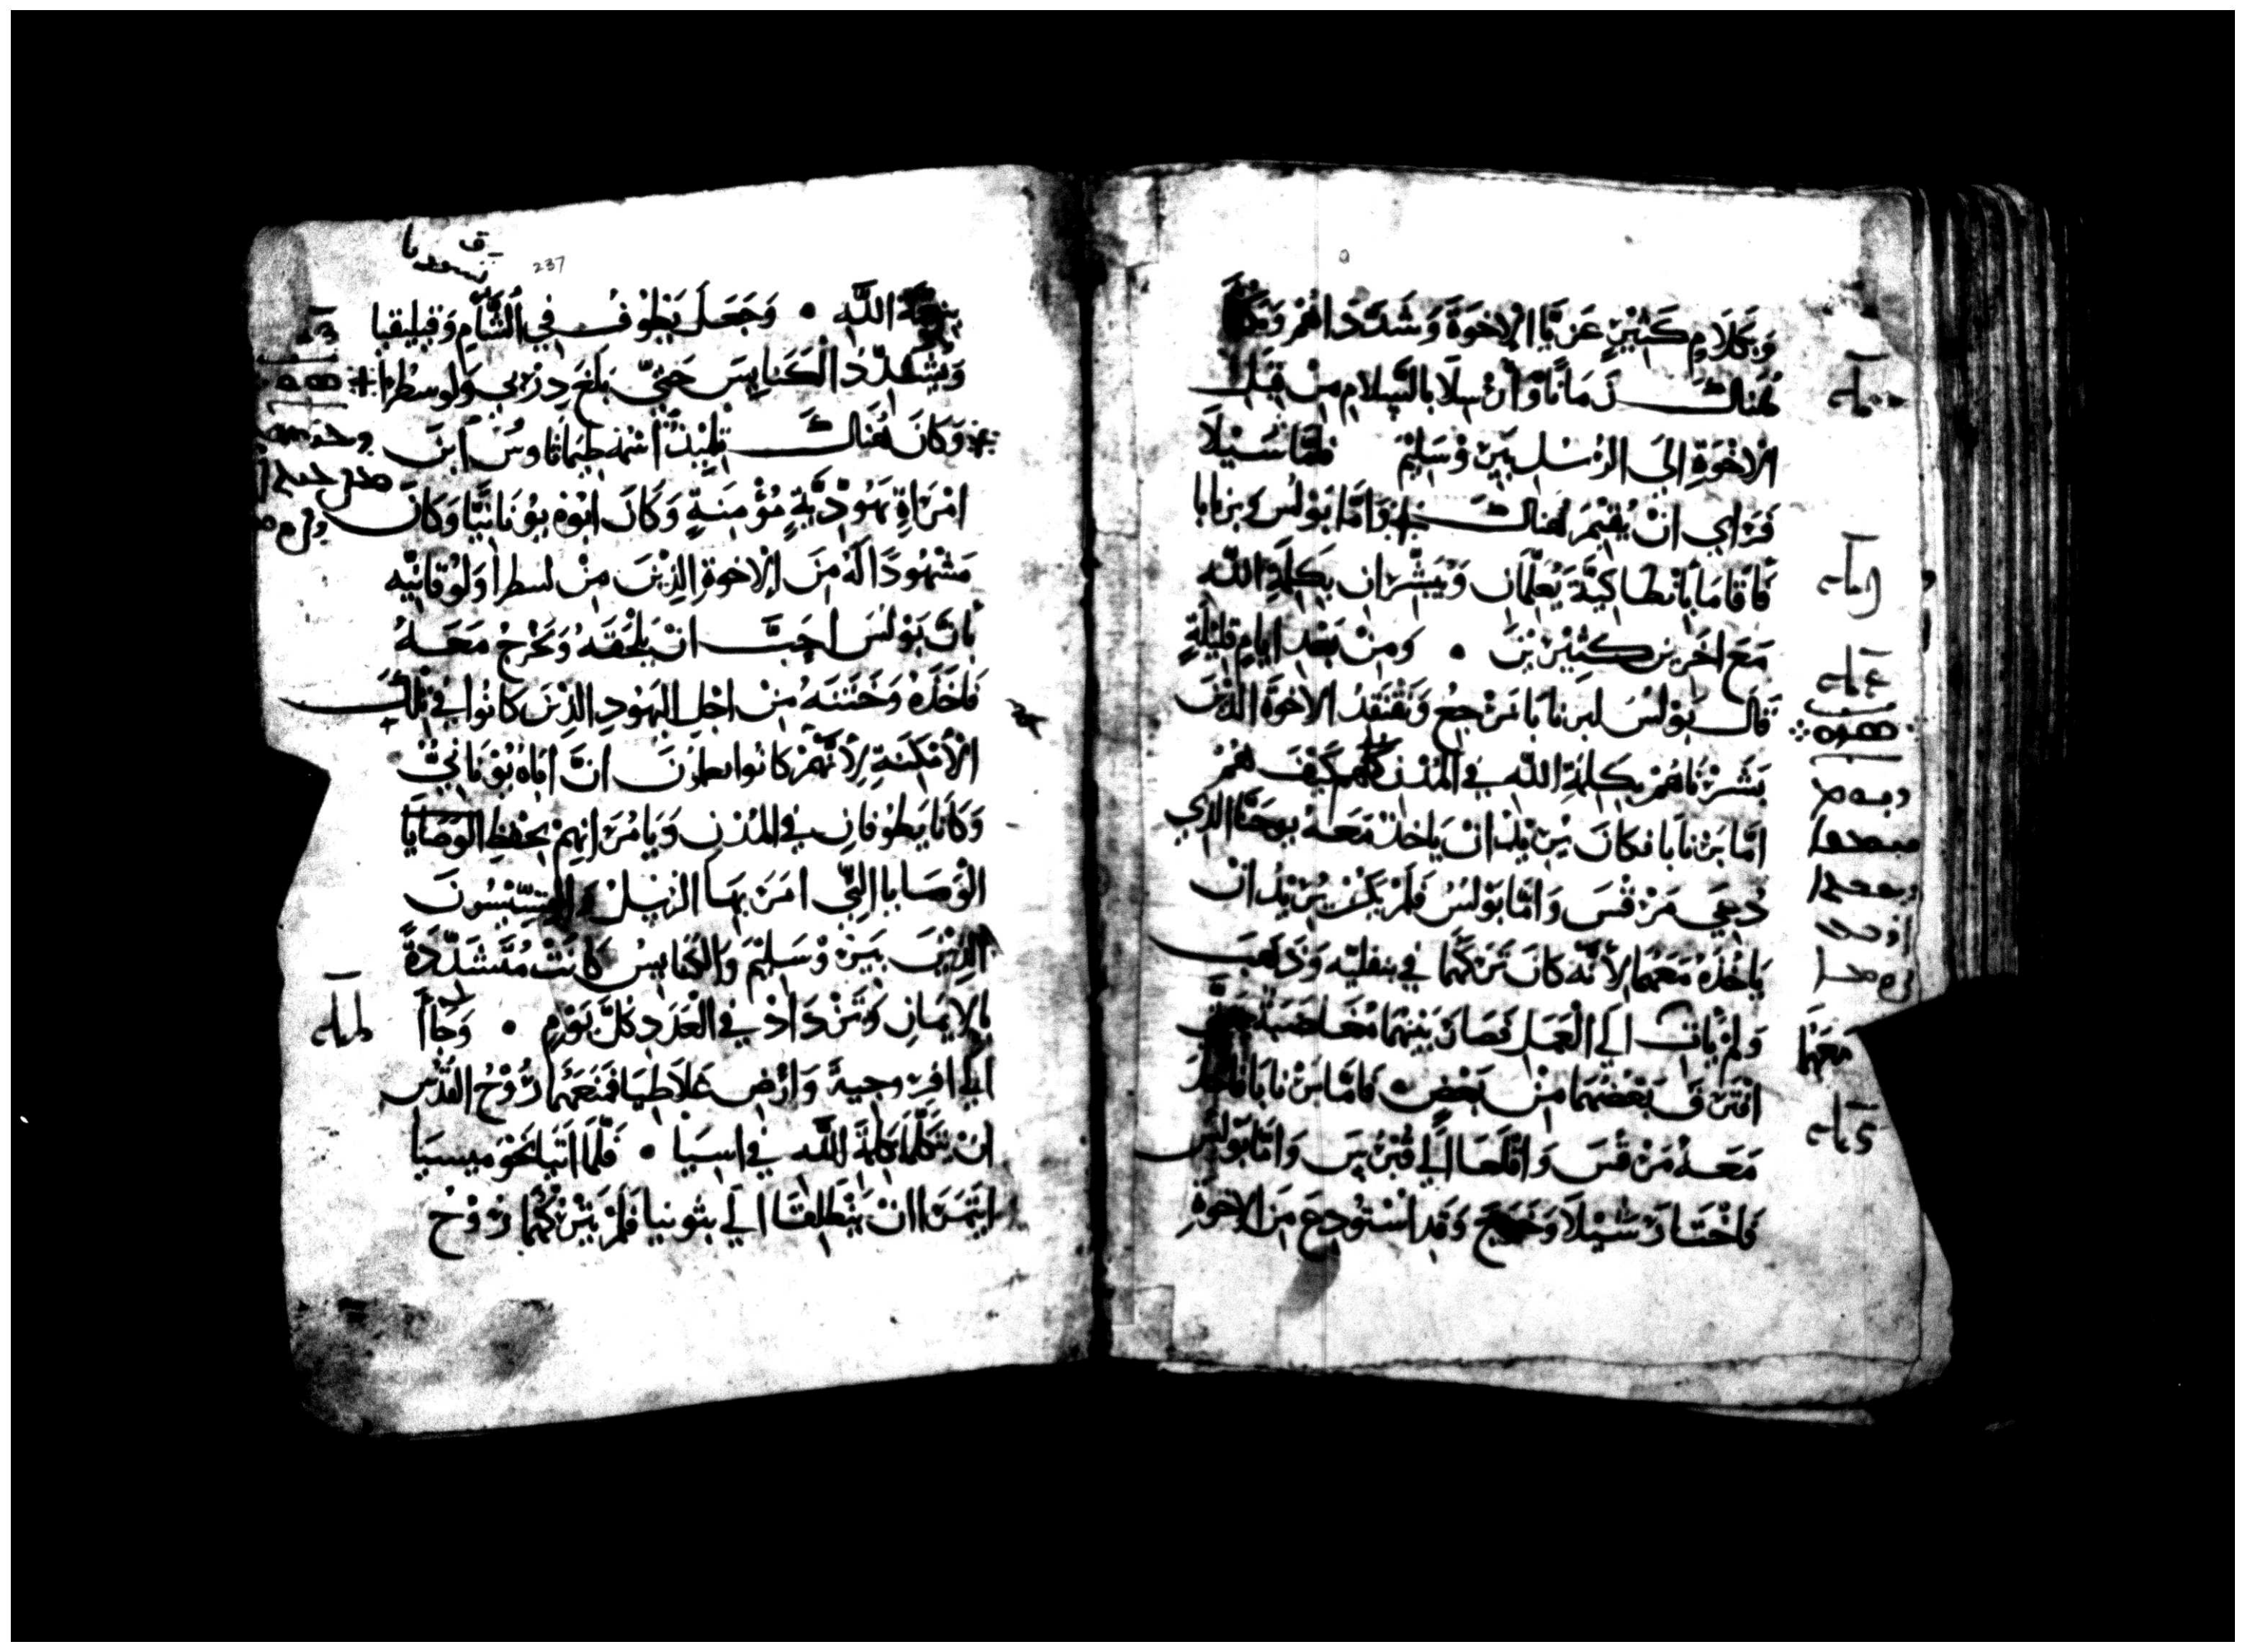 وَبِكَلَامٍ كَثِيْرٍ عَزَّيَا الاِخوَةَ وَشَدَّدَاهُمْ وَمَكَثَا
هُنَاكَ زَمَانًا وَأُرْسِلَا بِالسَّلامِ مِنْ قِبَلِ
الاخْوَةِ اِلَى الرُسُلِ بِيَرُوْسَلِيْمَ فَامَّا سَيْلَا
فَرَاي انْ يُقِيْمَ هُنَاكَ وَامَّا بَوْلُسُ وبرنابا
فَاقَامَا بِانْطَاكِيَّةَ يُعَلِّمَانِ وَيُبَشِّرَانِ بِكَلِمَةِ اللَّهِ
مَعَ اخَرِيْنَ كَثِيْرِيْنَ • وَمِنْ بَعْدِ ايامٍ قَلِيْلَةٍ
قَالَ بَوْلُسُ لبرنَابَا نَرْجِعُ وَنَفْتَقِدُ الاخوَةَ الذِيْنَ
بَشَّرْنَاهُمْ بِكَلِمَةِ اللَّهِ فِي المُدْنِ كُلِّهَا كَيْفَ هُمْ
امَّا بَرْنَابَا فكَانَ يُرِيْدُ انْ يَاخُذَ مَعَهُ يوحَنَّا الذِي
دُعِيَ مَرْقُسَ وَامَّا بَوْلُسُ فَلَمْ يَكُنْ يُرِيْدُ انْ
يَاخُذَهُ مَعَهُمَا لِأَنَّهُ كانَ تَرَكَهُمَا فِي بمفليه وَذَهَبَ
وَلمْ يَاتِ اِلَي الْعَمَلِ
معهما
فَصَارَ بَيْنَهُمَا مُغَاضَبَةٌ حَتَّي
افْتَرَقَ بَعْضُهُمَا مِنْ بَعْضٍ • فَامَّا بَرْنَابَا فَاخَذَ
مَعَهُ مَرْقُسَ وَاقْلَعَا اِلَي قُبْرُسَ وَامَّا بَوْلُسُ
فَاخْتَارَ سَيْلَا وَخَرَجَ وَقَدِ اسْتُودِعَ مِنَ الاِخوَةِ
237
نِعْمَةَ اللَّهِ • وَجَعَلَ يَطُوْفُ فِي الشَّامِ وَقيليقيا
وَيُشَدِّدُ الْكَنَايِسَ حَتَّيَ بَلَغَ دِرْبي وَلوسطرا
وَكَانَ هُنَاكَ تِلْمِيْذٌ اسْمُهُ طِيمَاثَاوسُ ابْنَ
امْرَاةٍ يَهُوْدِيَّةٍ مُؤْمِنَةٍ وَكَانَ ابُوْهُ يوُنَانِيًّا وَكَانَ
مَشْهُودًا لَهُ مِنَ الاِخوَةِ الذِيْنَ مِنْ لسطرا وَلُوْقَانِيْه
بانَّ بَوْلسَ احَبَّ انْ يَلْحَقَهُ وَيَخْرُجَ مَعَهُ
فَاخَذَهُ وَخَتَنَهُ مِنْ اجْلِ اليَهُودِ الذِيْنَ كَانُوا فِي تِلْكَ
الْأَمْكِنَةِ لِأَنَّهُمْ كَانُوا يعلمُونَ انَّ ابَاهُ يُوْنَانِيٌّ
وَكَانَا يَطُوْفَانِ فِي المُدْنِ وَيَامُرَانِهِمْ بِحِفْظِ الوَصَايَا
الْوَصَايا التِّي امَرَ بِهَا الرُسُلُ وَالقِسِّيْسُونَ
الذِيْنَ بِيَرُوْسَلِيْمَ وَالكَنَايِسُ كَانَتْ مُتَشَدِّدَةً
بِالاِيْمَانِ وَتَزْدَادُ فِي الْعَدَدِ كُلَّ يَوْمٍ • وَجَاآ
اِلَي افِرُوجِيةَ وَارْضِ غَلَاطِيَا فَمَنَعَهُمَا رُوْحُ القُدُسِ
انْ يَتَكَلَّمَا بكَلِمَةِ اللَّهِ فِي اسِيَا • فَلَمَّا اتَيَا نَحْوَ ميسيَا
ايْتَمَرَا انْ يَنْطَلِقَا اِلَي بثونيا فَلَمْ يَتْرُكْهُمَا رُوْحُ